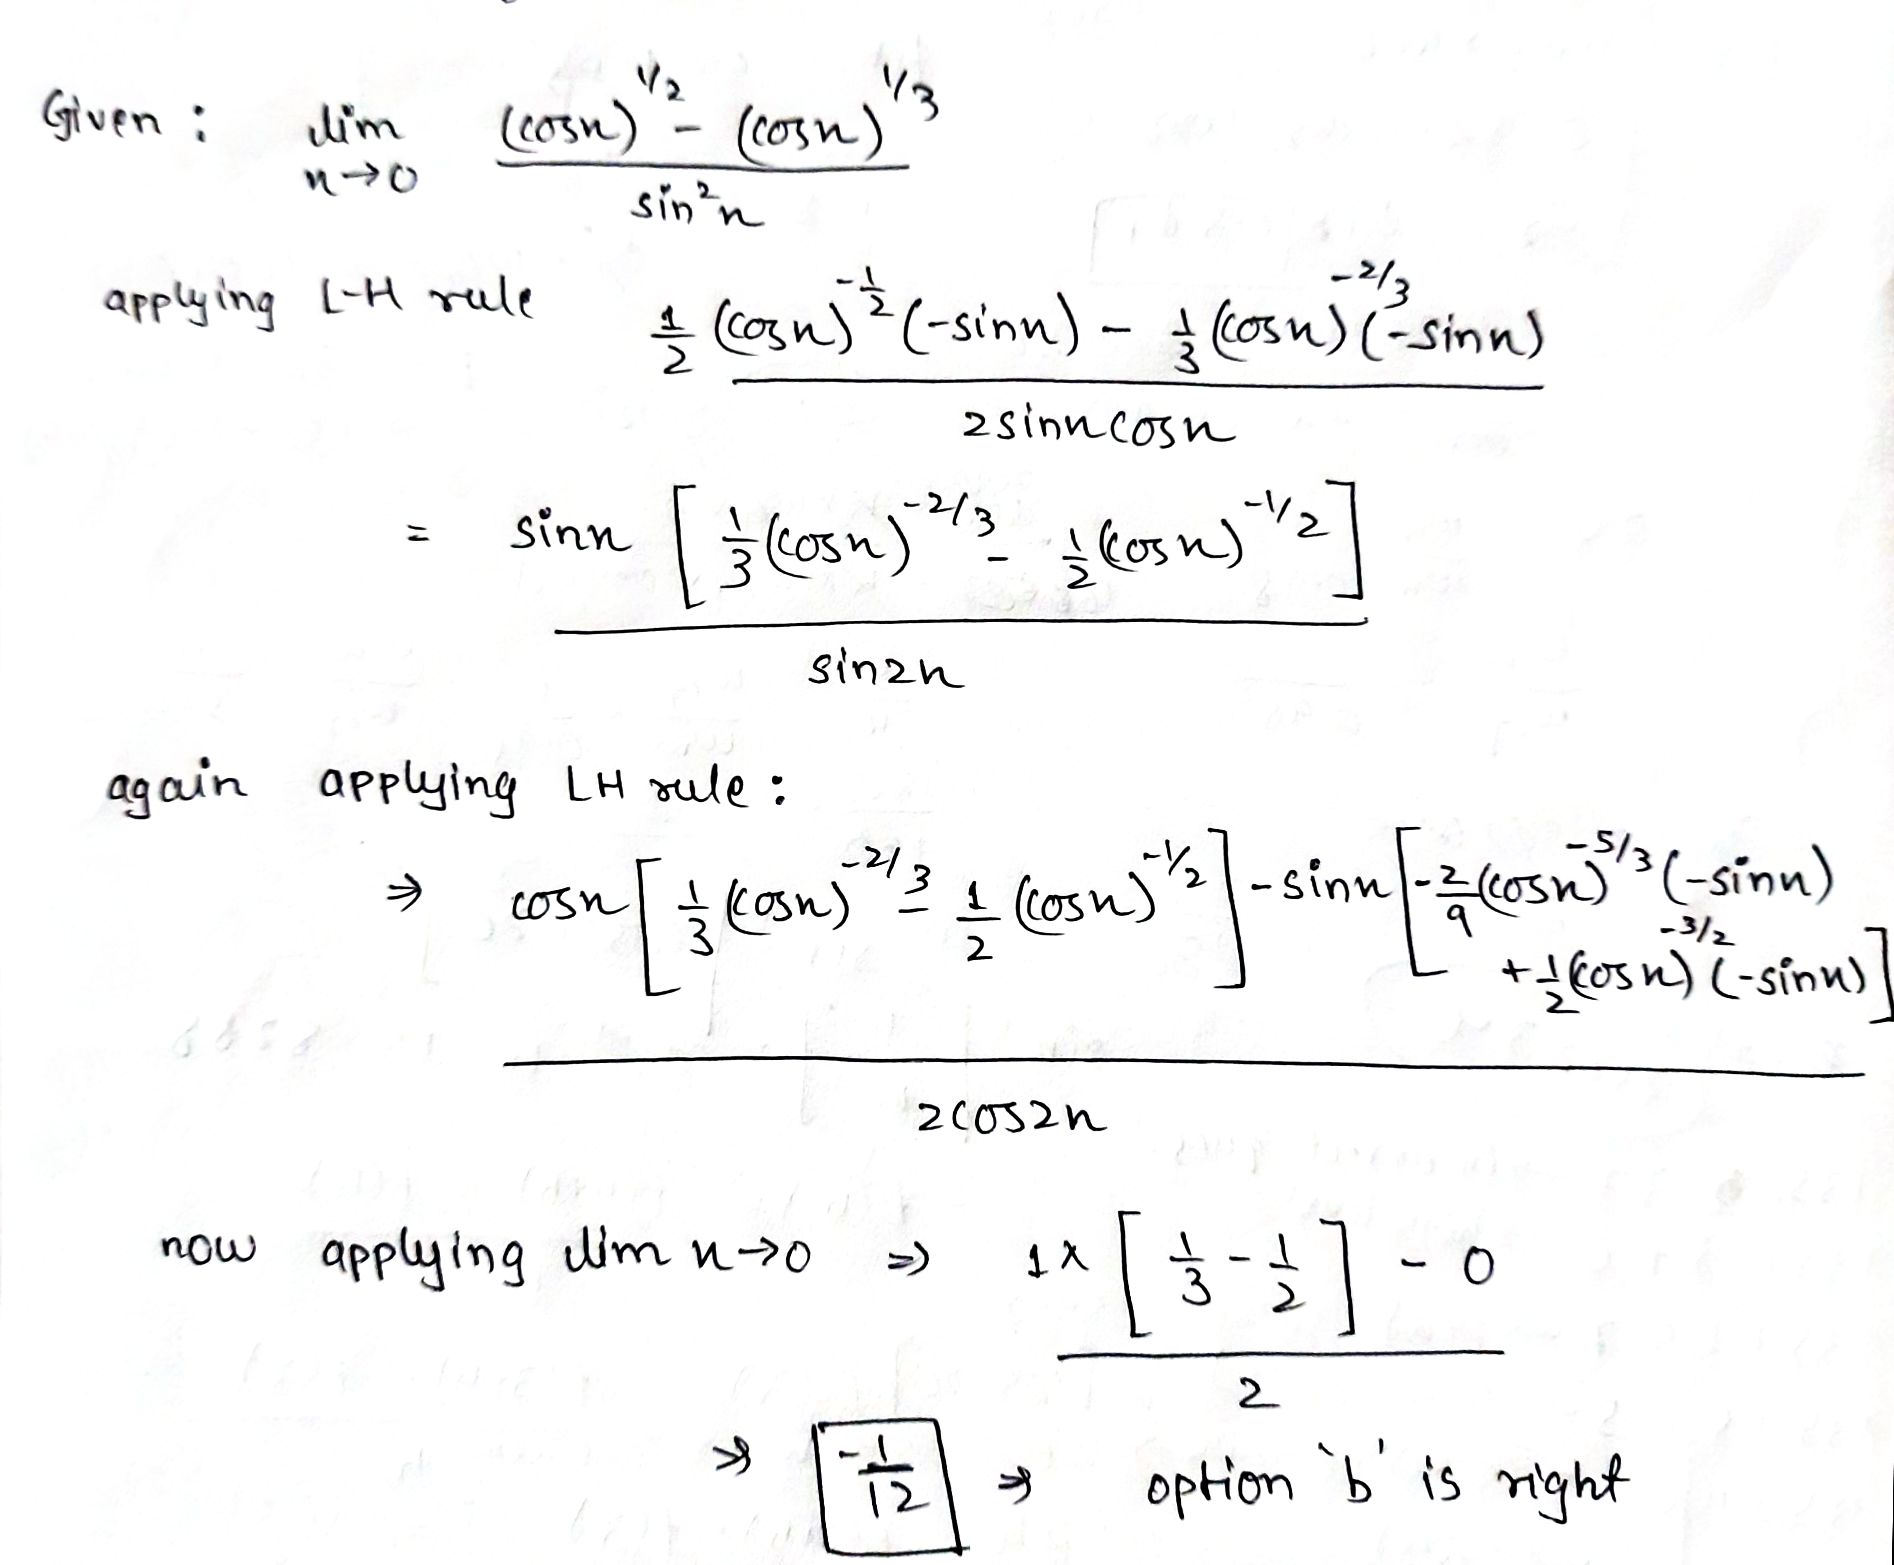 Given : lim n→0 ((cosn)^1/2 - (cosn)^1/3) / sin²n
applying L-H rule (1/2 (cosn)^-1/2 (-sinn) - 1/3 (cosn)^-2/3 (-sinn)) / 2sinncosn
= sinn [1/3 (cosn)^-2/3 - 1/2 (cosn)^-1/2] / sin2n
again applying LH rule :
⇒ (cosn [1/3 (cosn)^-2/3 - 1/2 (cosn)^-1/2] - sinn [-2/9 (cosn)^-5/3 (-sinn) + 1/2 (cosn)^-3/2 (-sinn)]) / 2cos2n
now applying lim n→0 ⇒ (1x [1/3 - 1/2] - 0) / 2
⇒ -1/12 ⇒ option 'b' is right